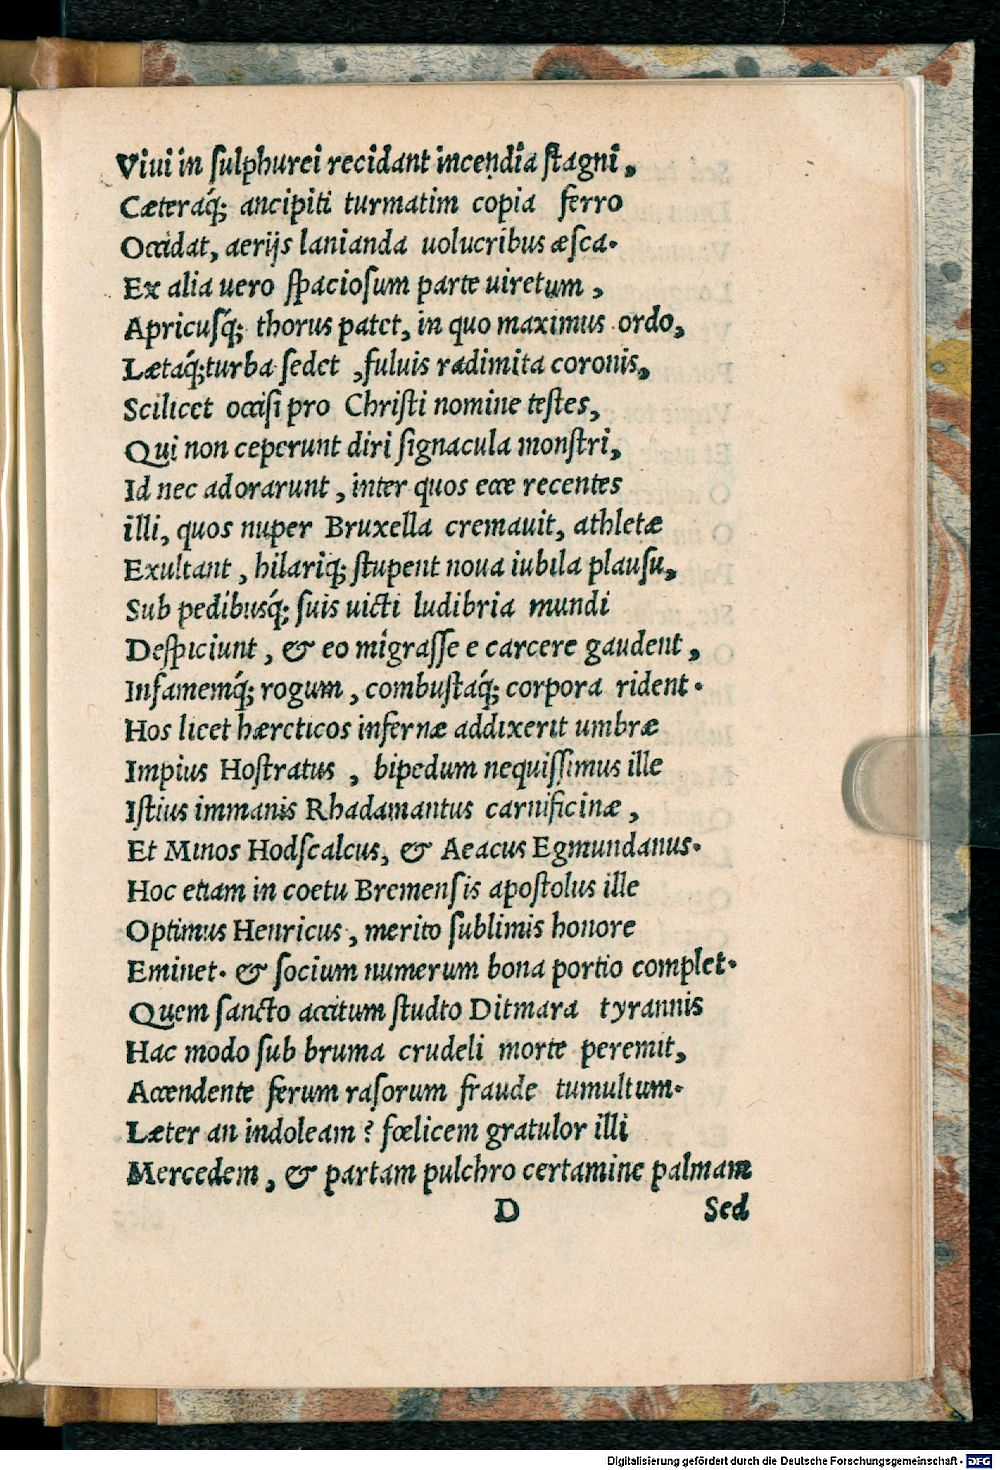 Viui in ſulphurei recidant incendia ſtagni,
Cæteraq́; ancipiti turmatim copia ferro
Occidat, aerijs lanianda uolucribus æſca.
Ex alia uero ſpacioſum parte uiretum,
Apricuſq́; thorus patet, in quo maximus ordo,
Lætaq́;turba ſedet ,fuluis radimita coronis,
Scilicet occiſi pro Chriſti nomine teſtes,
Qui non ceperunt diri ſignacula monſtri,
Id nec adorarunt, inter quos ecce recentes
illi, quos nuper Bruxella cremauit, athletæ
Exultant, hilariq́; ſtupent noua iubila plauſu,
Sub pedibusq́; ſuis uicti ludibria mundi
Deſpiciunt, & eo migraſſe e carcere gaudent,
Infamemq́; rogum, combuſtaq́; corpora rident.
Hos licet hæreticos infernæ addixerit umbræ
Impius Hoſtratus, bipedum nequiſſimus ille
Iſtius immanis Rhadamantus carnificinæ,
Et Minos Hodſcalcus, & Aeacus Egmundanus.
Hoc etiam in coetu Bremenſis apoſtolus ille
Optimus Henricus, merito ſublimis honore
Eminet. & ſocium numerum bona portio complet.
Quem ſancto accitum ſtudto Ditmara tyrannis
Hac modo ſub bruma crudeli morte peremit,
Accendente ferum raſorum fraude tumultum.
Læter an indoleam? fœlicem gratulor illi
Mercedem, & partam pulchro certamine palmam
D Sed
Digitalisierung gefördert durch die Deutsche Forschungsgemeinschaft - DFG